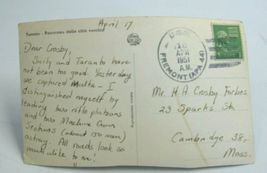 Taranto - Panorama della città vecchia
April 17
Dear Crosby,
Sicily and Taranto have
not been too good. Yesterday
we captured Malta - I
distinguished myself by
leading two rifle platoons
and two Machine Guns
Sections (about 150 men)
astray. All roads look so
much alike to me!
U.S.S.
18
APR
1951
A.M.
FREMONT (APA 44)
Mr. H A Crosby Forbes
23 Sparks St.
Cambridge 38,
Mass.